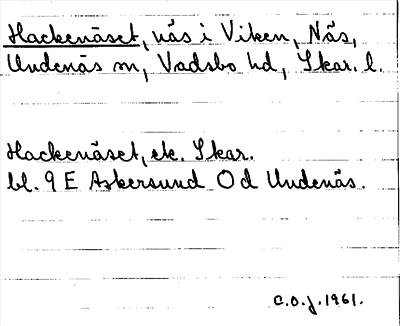 Hackenäset, näs i Viken, Näs,
Undenäs sn, Vadsbo hd, Skar. l.
Hackenäset, ek. Skar.
bl. 9 E Askersund Od Undenäs.
C.O.J. 1961.